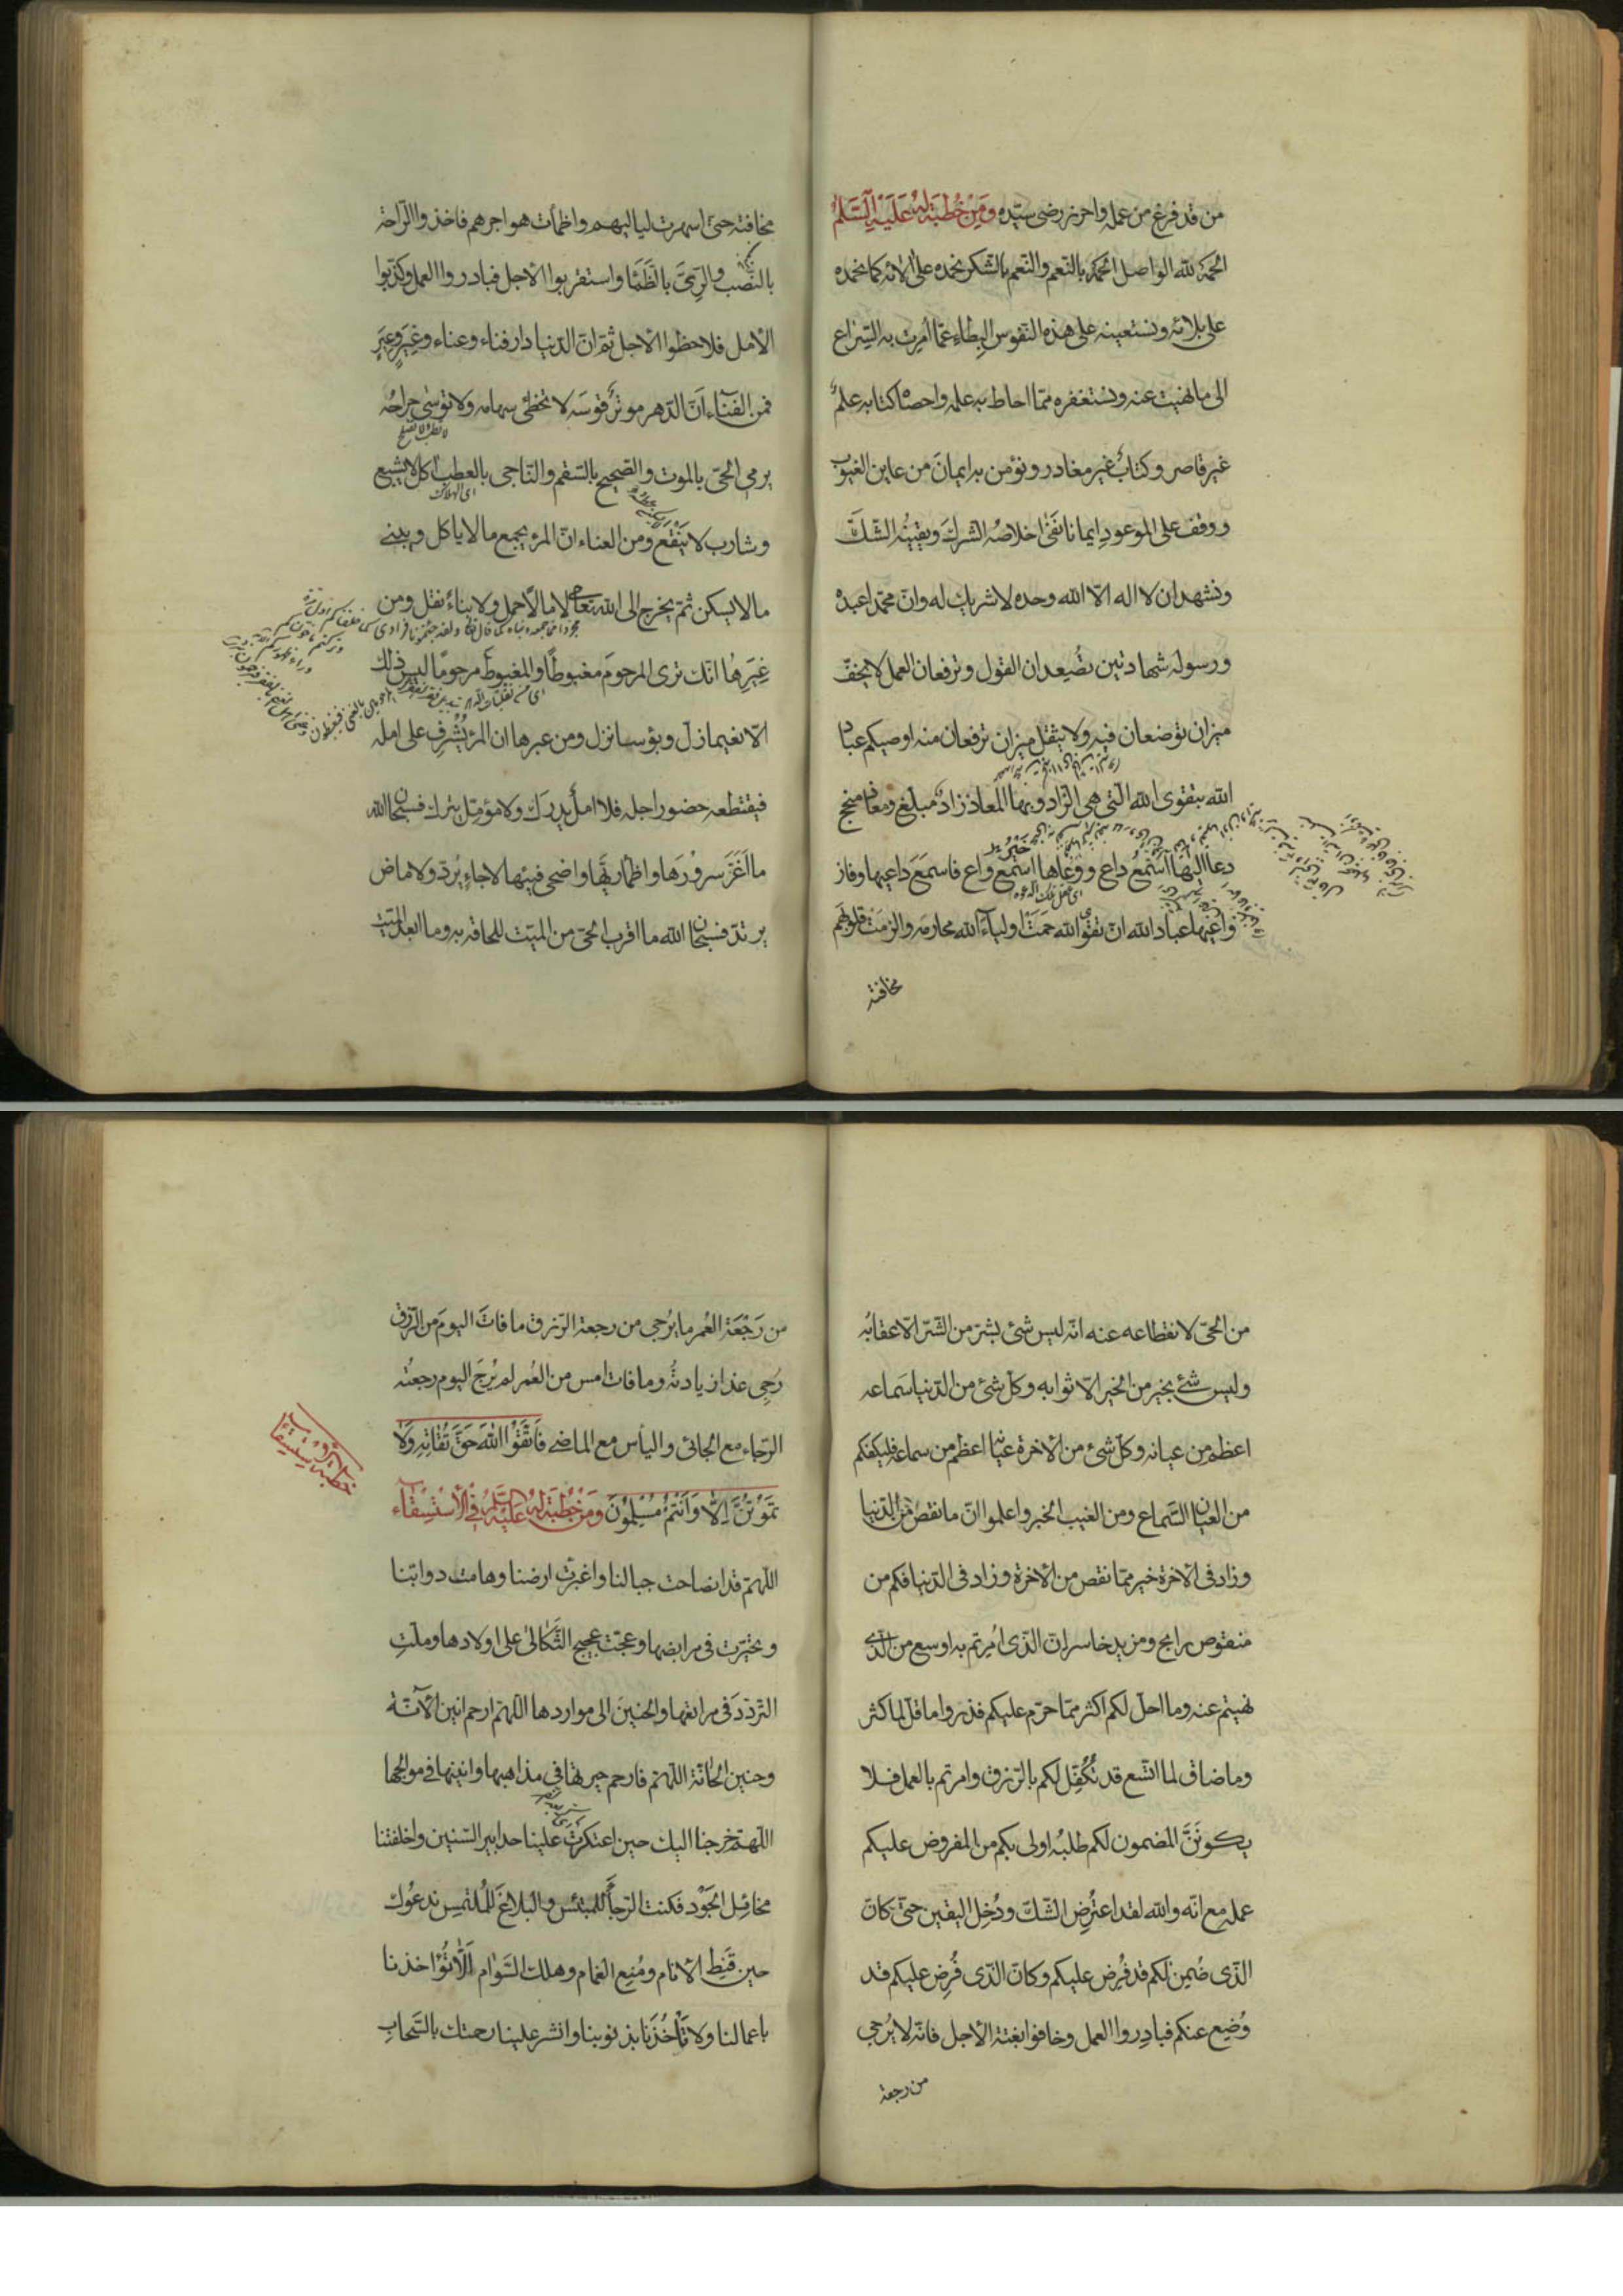 من قد فرغ من عمله واحرز رضى سيّده ومن خطبة له عليه السلم
الحمد لله الواصل الحمد بالنعم والنعم بالشكر نحمده على الائه كما نحمده
على بلائه ونستعينه على هذه النفوس البطاء عمّا اُمرت به السّراع
الى ما نهيت عنه ونستغفره ممّا احاط به علمه واحصاه كتابه علمٌ
غير قاصر وكتابٌ غير مغادر ونؤمن به ايمانَ من عاين الغيوب
ووقف على الموعود ايمانا نفىٰ اخلاصُه الشركَ ويقينُه الشّكَّ
ونشهد ان لا اله الّا الله وحده لا شريك له وانّ محمّدا عبده
ورسوله شهادتين تُصعدان القول وترفعان العمل لا يخفّ
ميزان توضعان فيه ولا يثقل ميزان ترفعان منه اوصيكم عباد
الله بتقوى الله الّتى هى الزاد وبها المعاذ زادٌ مبلّغ ومعاذ منجح
دعا اليها اسمع داع ووعاها
خير
واع فاسمَعَ داعيها وفاز
واعيها عباد الله انّ تقوى الله حمَتْ اولياءَ الله محارمه والزمَتْ قلوبَهم
مخافته
مخافته حتّى اسهرت لياليهم واظمأت هواجرهم فاخذوا الرّاحة
بالنّصب والرِّىَّ بالظَّمَا واستقربوا الاجل فبادروا العمل وكذّبوا
الأمل فلاحظوا الأجل ثمّ انّ الدّنيا دار فناء وعناء وغِيَرٍ وعِبَرٍ
فمن الفناء انّ الدّهر موترٌ قوسَه لا تخطئ سهامه ولا توسٰى جراحُه
يرمى الحىّ بالموت والصّحيح بالسّقم والنّاجى بالعطب اكل لا يشبع
اى الهلاك
وشارب لا يَنْقَع ومن العناء انّ المرء يجمع ما لا ياكل ويبنى
ما لا يسكن ثمّ يخرج الى الله تعالى لا مالا حمل ولا بناءً نقل ومن
غِيَرِها انّك ترى المرحومَ مغبوطًا والمغبوط مرحومًا ليس ذلك
الّا نعيما زلّ وبؤسا نزل ومن عبرها ان المرءَ يُشْرِف على امله
فيقتطعه حضور اجله فلا املٌ يدرَك ولا مؤمّلٌ يترك فسبحان الله
ما اَغَرَّ سرورَها واظمأ ريَّها واضحى فيئها لا جاءٍ يُردّ ولا ماض
يرتدّ فسبحان الله ما اقرب الحىّ من الميّت للحاقه به وما ابعد الميّت
من الحىّ لانقطاعه عنه انّه ليس شئ بشرّ من الشّرّ الّا عقابُه
وليس شئ بخير من الخير الّا ثوابه وكلّ شئ من الدّنيا سَماعه
اعظم من عيانه وكلّ شئ من الاخرة عيانُها اعظم من سماعه فليكفكم
من العيان السّماع ومن الغيب الخبر واعلموا انّ ما نقص من الدّنيا
وزاد فى الاخرة خير ممّا نقص من الاخرة وزاد فى الدّنيا فكم من
منقوص رابح ومزيد خاسر ان الّذى اُمرتم به اوسع من الّذى
نهيتم عنه وما احلّ لكم اكثر ممّا حرّم عليكم فذروا ما قلّ لما كثر
وما ضاق لما اتّسع قد تُكُفِّل لكم بالرّزق وامرتم بالعمل فلا
يكوننَّ المضمون لكم طلبُه اولى بكم من المفروض عليكم
عمله مع انّه والله لقد اعتُرِض الشّكّ ودُخِل اليقين حتّى كانّ
الّذى ضُمِن لكم قد فُرِض عليكم وكانّ الّذى فُرِض عليكم قد
وُضِع عنكم فبادِروا العمل وخافوا بغتة الأجل فانّه لا يُرجى
من رجعة
من رَجْعَة العُمر ما يُرجى من رجعة الرّزق ما فاتَ اليومَ من الرّزق
رُجِى غدا زيادتُه وما فات امس من العُمر لم يُرجَ اليوم رجعتُه
الرّجاء مع الجائى والياس مع الماضى فَاتَّقُوْا اللهَ حَقَّ تُقَاتِهِ وَلَا
تَمُوْتُنَّ اِلَّا وَاَنْتُمْ مُسْلِمُوْنَ وَمِنْ خُطْبَةٍ لَهُ عَلَيْهِ السَّلَم فِي الْاِسْتِسْقَاء
اللّهمّ قد انصاحت جبالنا واغبرّت ارضنا وهامت دوابّنا
وتحيّرت فى مرابضها وعجّت عجيج الثّكالىٰ على اولادها وملّتِ
التردّدَ فى مراتعها والحنينَ الى مواردها اللّهمّ ارحم انين الآنّة
وحنين الحانّة اللّهمّ فارحم حيرتها فى مذاهبها وانينها فى موالجها
اللّهمّ خرجنا اليك حين اعتكرت علينا حدابير السّنين واخلفتنا
مخائِل الجَوْد فكنت الرّجاءَ للمبتئس والبلاغَ للملتمِس ندعُوك
حين قَنِط الانام ومُنِع الغمام وهلك السّوام اَلّا تُؤاخذنا
باعمالنا ولا تأخُذَنا بذنوبنا وانشر علينا رحمتك بالسّحابِ